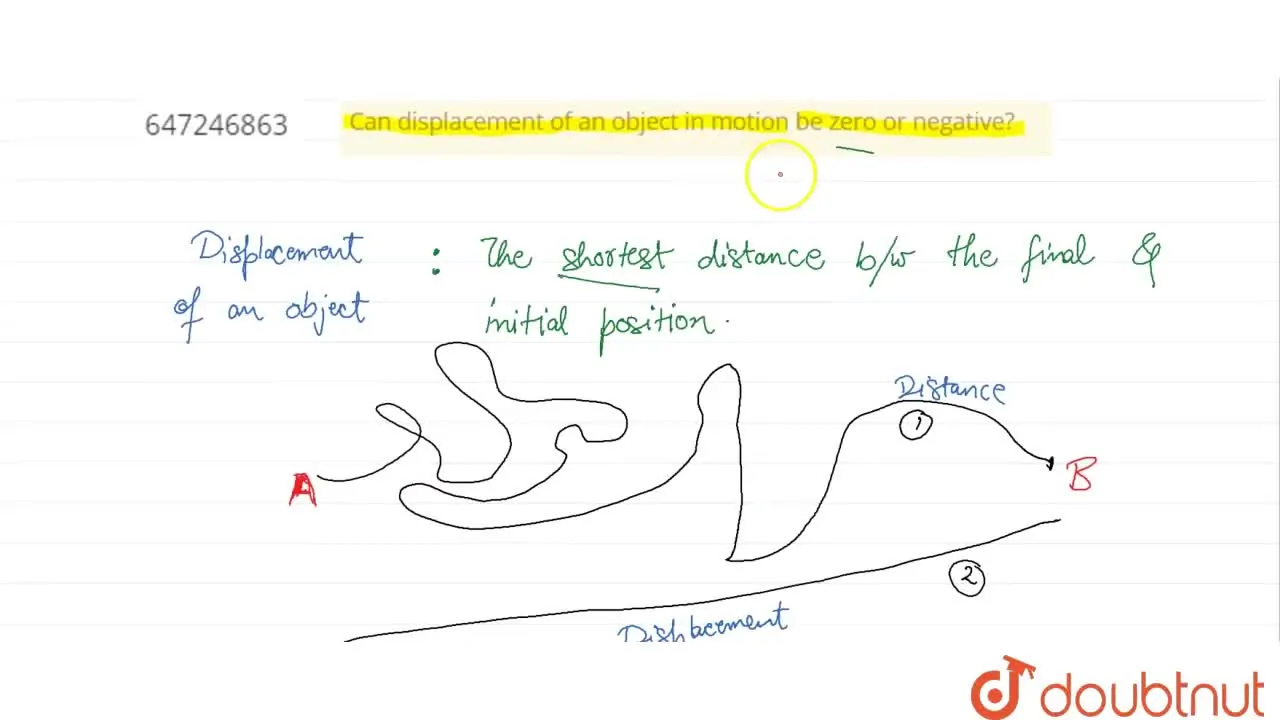 647246863
Can displacement of an object in motion be zero or negative?
Displacement : The shortest distance b/w the final &
of an object initial position.
Distance
1
A
B
2
Displacement
doubtnut